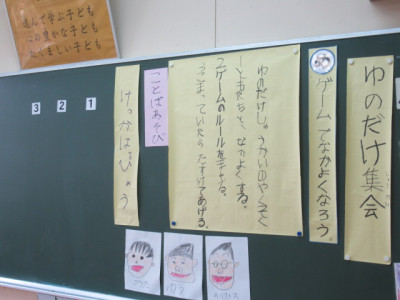 ゆのだけ集会
ゲームでなかよくなろう
ゆのだけしゅうかいのやくそく
ともだちと、なかよくする。
ゲームのルールをまもる。
こまっていたらたすけてあげる。
ことばあそび
けっかはっぴょう
1
2
3
進んで学ぶ子ども
心の豊かな子ども
たくましい子ども